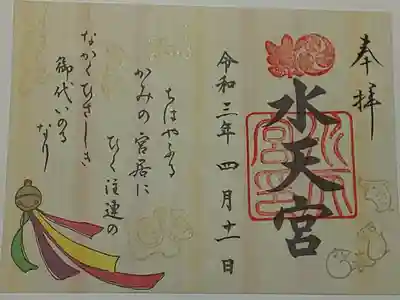 奉拝
水天宮
令和三年四月十一日
ちはやふる
かみの宮居に
ひく注連の
なかくひさしき
御代いのる
なり